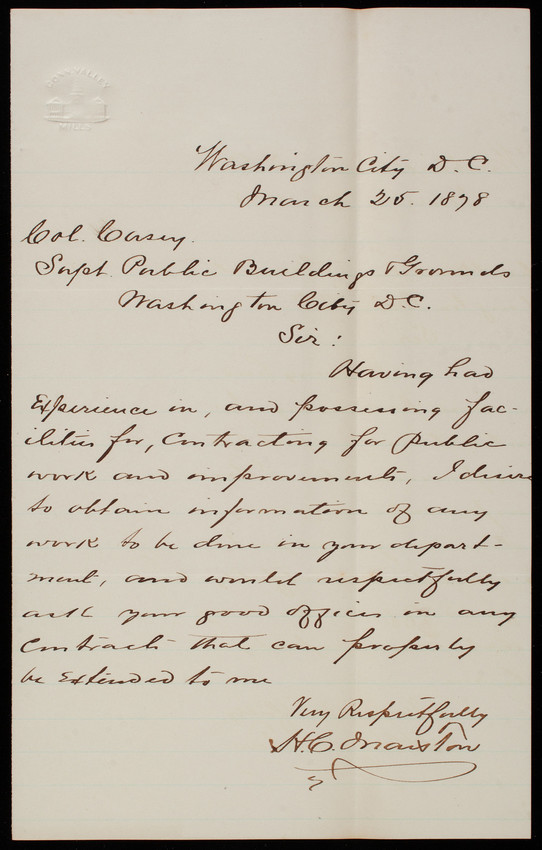 MILLS
Washington City D.C.
March 25. 1878
Col. Casey.
Supt. Public Buildings & Grounds
Washington City D.C.
Sir:
Having had
Experience in, and possessing fac-
ilities for, Contracting for Public
work and improvements, I desire
to obtain information of any
work to be done in your depart-
ment, and would respectfully
ask your good offices in any
Contracts that can properly
be Extended to me
Very Respectfully
H.C.